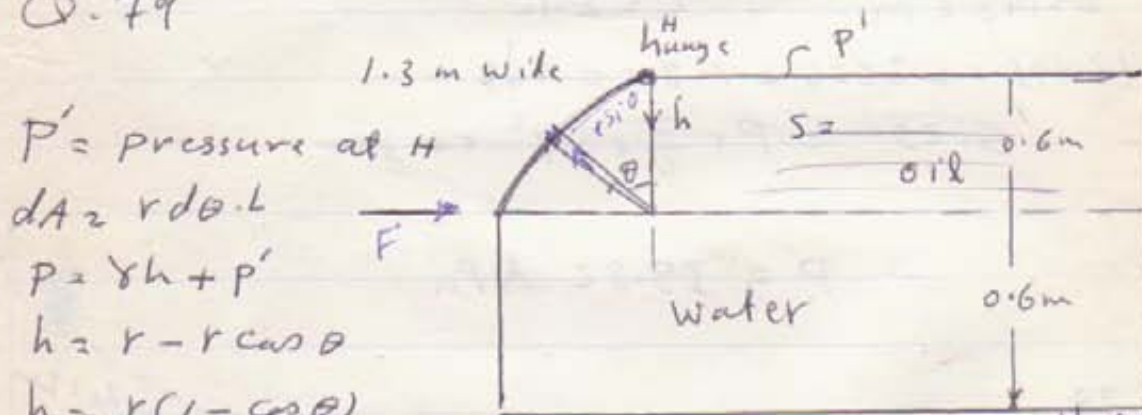 Q. 79
1.3 m wide
H
hunge
P'
P' = pressure at H
dA = r dθ · L
P = γh + P'
h = r - r cos θ
h = r(1 - cos θ)
F
r sin θ
θ
h
S =
oil
0.6m
water
0.6m